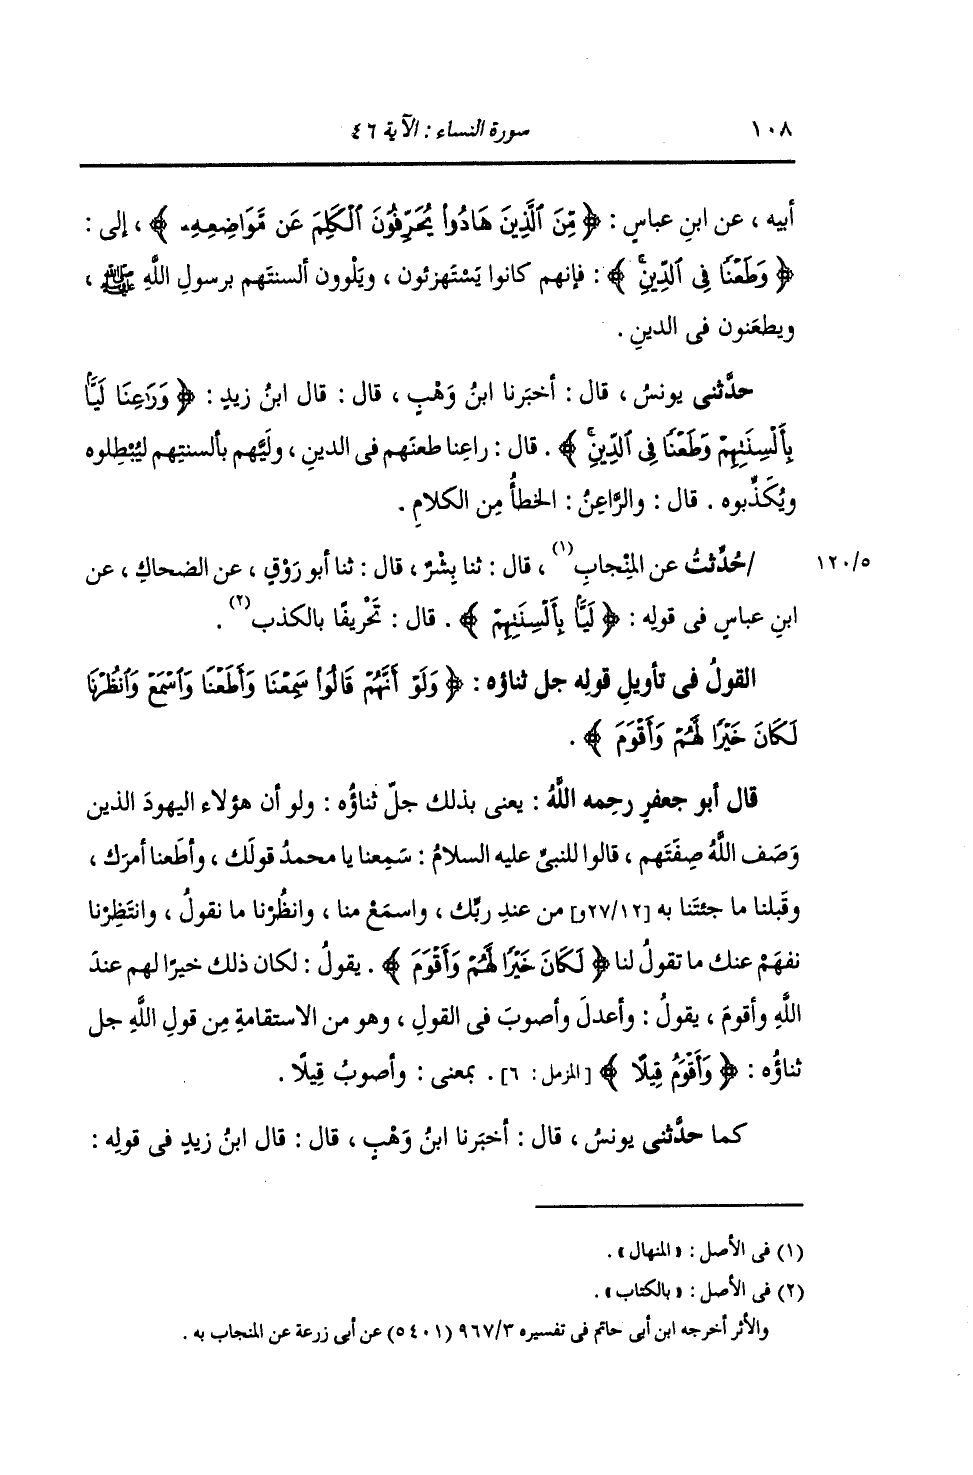 ١٠٨ سورة النساء : الآية ٤٦
أبيه ، عن ابنِ عباسٍ : ﴿ مِّنَ ٱلَّذِينَ هَادُوا۟ يُحَرِّفُونَ ٱلْكَلِمَ عَن مَّوَاضِعِهِۦ ﴾ ، إلى :
﴿ وَطَعْنًا فِى ٱلدِّينِۚ ﴾ : فإنهم كانوا يَسْتهزئون ، ويَلْوون ألسنتَهم برسولِ اللَّهِ ﷺ ،
ويطعَنون فى الدينِ .
حدَّثنى يونسُ ، قال : أخبَرنا ابنُ وَهْبٍ ، قال : قال ابنُ زيدٍ : ﴿ وَرَٰعِنَا لَيًّۢا
بِأَلْسِنَتِهِمْ وَطَعْنًا فِى ٱلدِّينِۚ ﴾ . قال : راعِنا طعنَهم فى الدينِ ، وليَّهم بألسنتِهم ليُبْطِلوه
ويُكَذِّبوه . قال : والرَّاعِنُ : الخطأُ مِن الكلامِ .
١٢٠/٥ /حُدِّثتُ عن المِنْجابِ(١) ، قال : ثنا بِشْرٌ ، قال : ثنا أبو رَوْقٍ ، عن الضحاكِ ، عن
ابنِ عباسٍ فى قولِه : ﴿ لَيًّۢا بِأَلْسِنَتِهِمْ ﴾ . قال : تَحْريفًا بالكذب(٢) .
القولُ فى تأويلِ قولِه جل ثناؤه : ﴿ وَلَوْ أَنَّهُمْ قَالُوا۟ سَمِعْنَا وَأَطَعْنَا وَٱسْمَعْ وَٱنظُرْنَا
لَكَانَ خَيْرًا لَّهُمْ وَأَقْوَمَ ﴾ .
قال أبو جعفرٍ رحِمه اللَّهُ : يعنى بذلك جلّ ثناؤُه : ولو أن هؤلاء اليهودَ الذين
وَصَف اللَّهُ صِفَتَهم ، قالوا للنبىِّ عليه السلامُ : سَمِعنا يا محمدُ قولَك ، وأطَعنا أمرَك ،
وقَبلنا ما جئتَنا به [٢٧/١٢و] من عندِ ربِّك ، واسمَعْ منا ، وانظُرْنا ما نقولُ ، وانتَظِرْنا
نفهَمْ عنك ما تقولُ لنا ﴿ لَكَانَ خَيْرًا لَّهُمْ وَأَقْوَمَ ﴾ . يقولُ : لكان ذلك خيرًا لهم عندَ
اللَّهِ وأقومَ ، يقولُ : وأعدلَ وأصوبَ فى القولِ ، وهو من الاستقامةِ مِن قولِ اللَّهِ جل
ثناؤُه : ﴿ وَأَقْوَمُ قِيلًا ﴾ [المزمل : ٦] . بمعنى : وأصوبُ قِيلًا .
كما حدَّثنى يونسُ ، قال : أخبَرنا ابنُ وَهْبٍ ، قال : قال ابنُ زيدٍ فى قولِه :
(١) فى الأصل : « المنهال » .
(٢) فى الأصل : « بالكتاب » .
والأثر أخرجه ابن أبى حاتم فى تفسيره ٩٦٧/٣ (٥٤٠١) عن أبى زرعة عن المنجاب به .